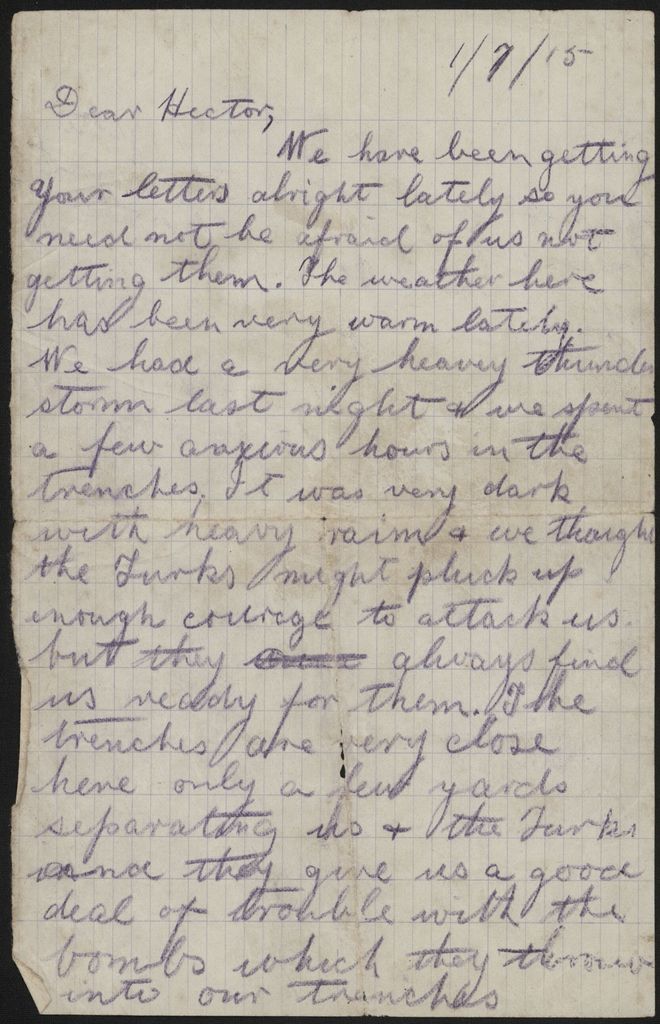 1/7/15
Dear Hector,
We have been getting
your letters alright lately so you
need not be afraid of us not
getting them. The weather here
has been very warm lately.
We had a very heavy thunder
storm last night & we spent
a few anxious hours in the
trenches. It was very dark
with heavy rain & we thought
the Turks might pluck up
enough courage to attack us.
but they always find
us ready for them. The
trenches are very close
here only a few yards
separating us & the Turks
and they give us a good
deal of trouble with the
bombs which they throw
into our trenches